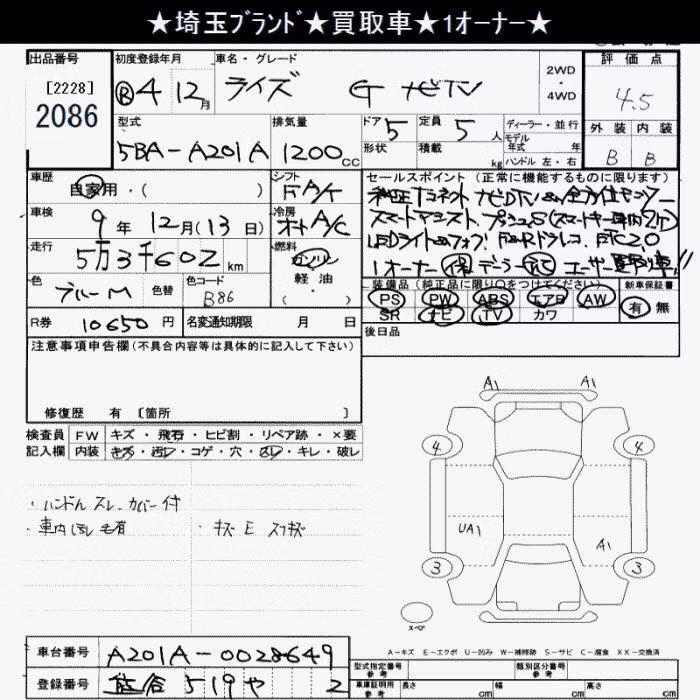 ★埼玉ブランド★買取車★1オーナー★
出品番号
[2228]
2086
初度登録年月
R4 12月
車名・グレード
ライズ G ナビTV
2WD
・
4WD
評価点
4.5
外装 内装
B B
型式
5BA-A201A
排気量
1200cc
ドア
5
定員
5人
形状
積載
kg
ディーラー・並行
モデル
年式 年
ハンドル 左・右
車歴
自家用・( )
シフト
FAT
車検
9年 12月(13日)
冷房
オートA/C
走行
5万3千602km
燃料
ガソリン
軽油
( )
色
ブルーM
色替
色コード
B86
R券
10650円
名変通知期限 月 日
セールスポイント (正常に機能するものに限ります)
純正コネクトナビDTV&全方位モニター
スマートアシスト プッシュS(スマートキー車内2ケ)
LEDライト&フォグ F&Rドラレコ ETC2.0
1オーナー 保 デーラー 記 ユーザー買取車!!
装備品 (純正品に限り○をつけてください)
PS PW ABS エアB AW
SR ナビ TV カワ
新車保証書
有 無
後日品
注意事項申告欄(不具合内容等は具体的に記入して下さい)
修復歴 有 [箇所 ]
検査員 FW キズ・飛石・ヒビ割・リペア跡・×要
記入欄 内装 キズ・汚レ・コゲ・穴・スレ・キレ・破レ
・ハンドル スレ カバー付
・車内 毛有
・キズ E スリキズ
A1 A1
4 4
UA1 A1
3 3
スペア
A-キズ E-エクボ U-凹み W-補修跡 S-サビ C-腐食 XX-交換済
車台番号
A201A-0028649
登録番号
熊谷 519 や 2
型式指定番号
参考
類別区分番号
参考
車庫証明用
参考
長さ cm 幅 cm 高さ cm